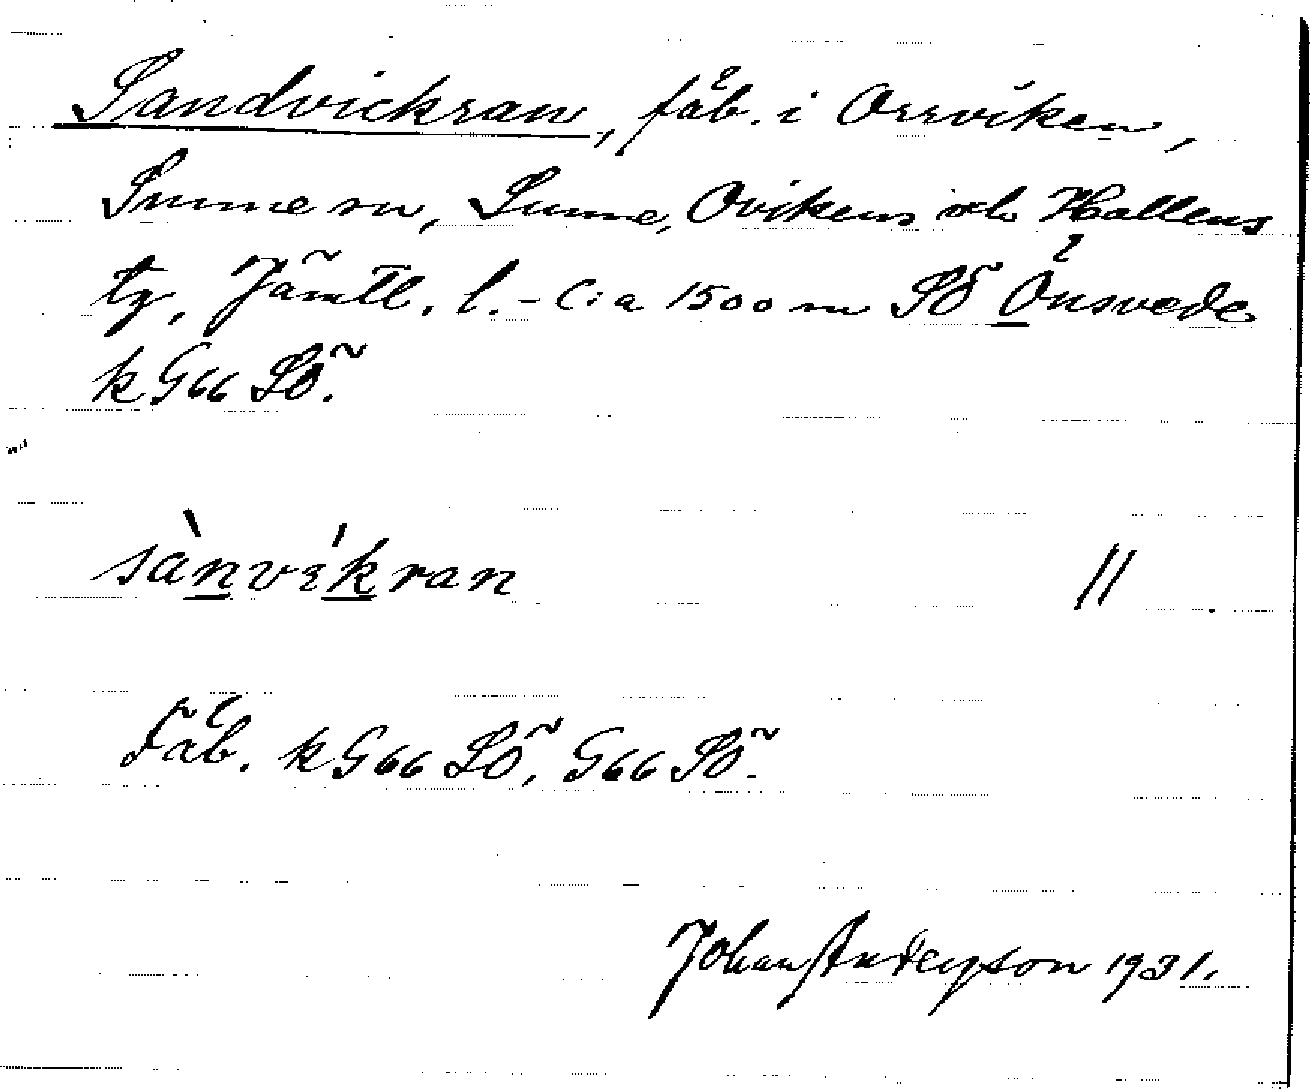 Sandvickran, fäb. i Orrviken,
Sunne sn, Sunne, Ovikens och Hallens
tg, Jämtl. l. - C:a 1500 m SÖ Önsvede
k G66 SÖ.
sànvi̍kran //
Fäb. k G66 SÖ, G66 SÖ.
Johan Anderson 1931.